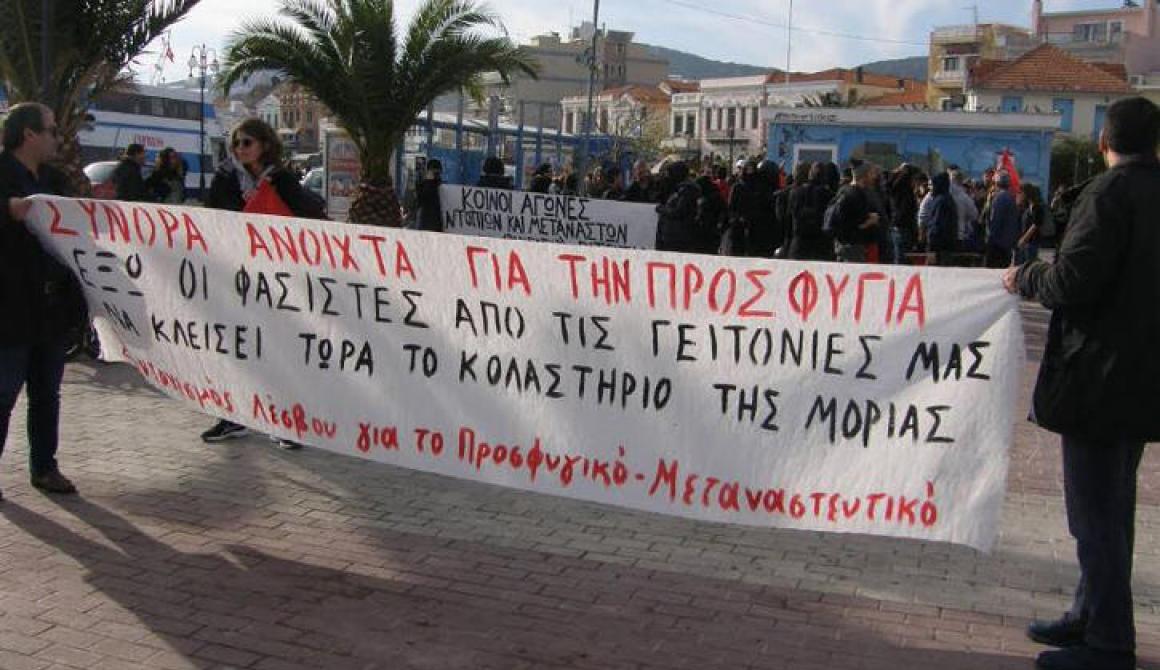 ΚΟΙΝΟΙ ΑΓΩΝΕΣ
ΝΤΟΠΙΩΝ ΚΑΙ ΜΕΤΑΝΑΣΤΩΝ
ΣΥΝΟΡΑ ΑΝΟΙΧΤΑ ΓΙΑ ΤΗΝ ΠΡΟΣΦΥΓΙΑ
ΕΞΩ ΟΙ ΦΑΣΙΣΤΕΣ ΑΠΟ ΤΙΣ ΓΕΙΤΟΝΙΕΣ ΜΑΣ
ΝΑ ΚΛΕΙΣΕΙ ΤΩΡΑ ΤΟ ΚΟΛΑΣΤΗΡΙΟ ΤΗΣ ΜΟΡΙΑΣ
Συντονισμός Λέσβου για το Προσφυγικό - Μεταναστευτικό